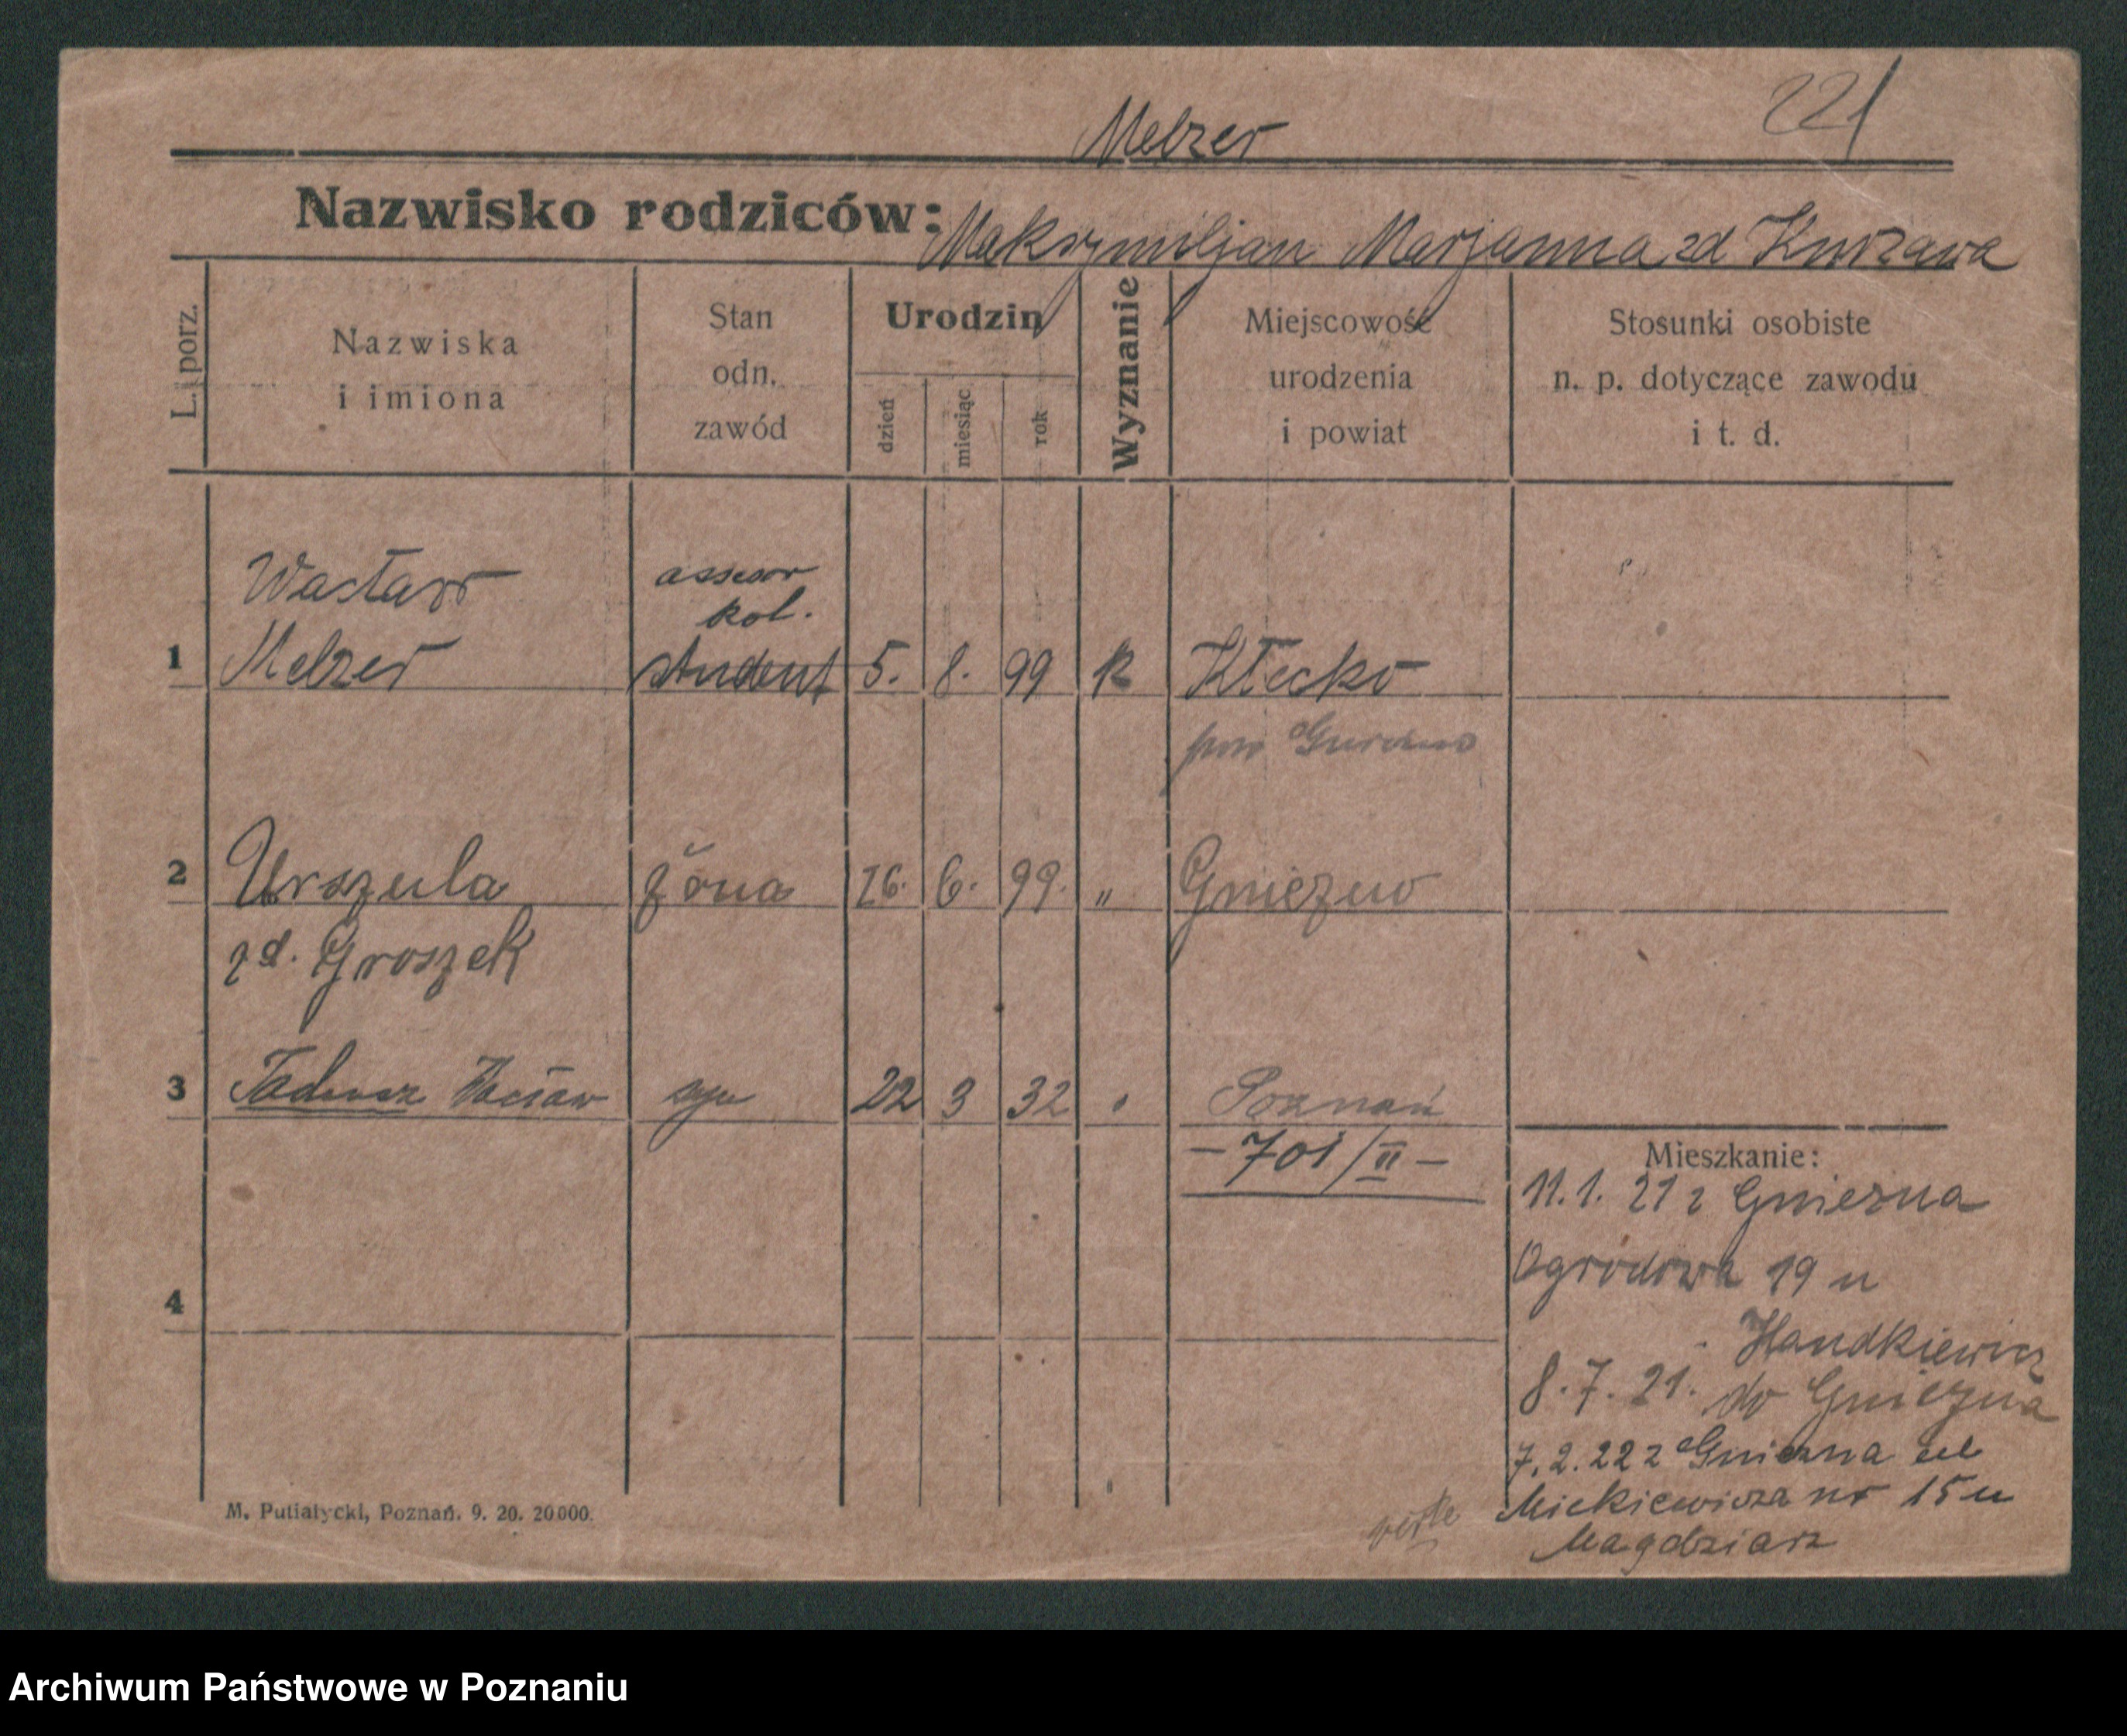 221
Melzer
Nazwisko rodziców:
Maksymiljan Marjanna zd Kurzawa
L. porz.
Nazwiska
i imiona
Stan
odn.
zawód
Urodzin
dzień
miesiąc
rok
Wyznanie
Miejscowość
urodzenia
i powiat
Stosunki osobiste
n. p. dotyczące zawodu
i t. d.
Wacław assesor
kol.
1 Melzer student 5. 8. 99 k Kłecko
pow Gniezno
2 Urszula żona 26. 6. 99. " Gniezno
zd. Groszek
3 Tadeusz Wacław syn 22 3 32 " Poznań
- 701/II -
Mieszkanie:
11. 1. 21 z Gniezna
Ogrodowa 19 u
Handkiewicz
8. 7. 21. do Gniezna
7. 2. 22 z Gniezna
Mickiewicza nr 15 u
Magdziarz
verte
4
M. Putiatycki, Poznań. 9. 20. 20000.
Archiwum Państwowe w Poznaniu